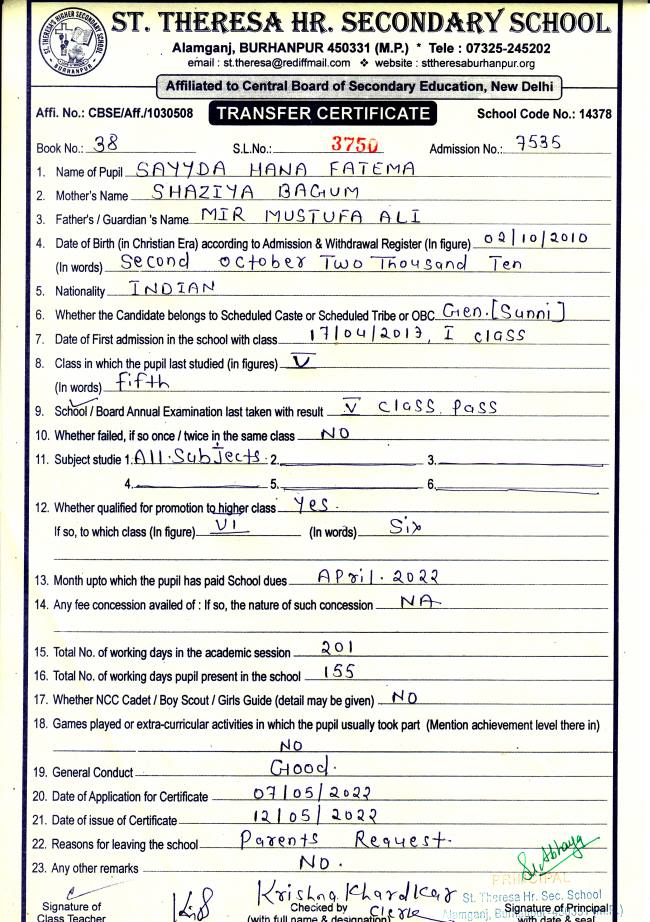 ST. THERESA HR. SECONDARY SCHOOL
Alamganj, BURHANPUR 450331 (M.P.) * Tele : 07325-245202
email : st.theresa@rediffmail.com ❖ website : sttheresaburhanpur.org
Affiliated to Central Board of Secondary Education, New Delhi
Affi. No.: CBSE/Aff./1030508 TRANSFER CERTIFICATE School Code No.: 14378
Book No.: 38 S.L.No.: 3750 Admission No.: 7535
1. Name of Pupil SAYYDA HANA FATEMA
2. Mother's Name SHAZIYA BAGUM
3. Father's / Guardian 's Name MIR MUSTUFA ALI
4. Date of Birth (in Christian Era) according to Admission & Withdrawal Register (In figure) 02/10/2010
(In words) Second October Two Thousand Ten
5. Nationality INDIAN
6. Whether the Candidate belongs to Scheduled Caste or Scheduled Tribe or OBC Gen.[Sunni]
7. Date of First admission in the school with class 17/04/2017, I class
8. Class in which the pupil last studied (in figures) V
(In words) fifth
9. School / Board Annual Examination last taken with result V class pass
10. Whether failed, if so once / twice in the same class NO
11. Subject studie 1. All Subjects 2. 3.
4. 5. 6.
12. Whether qualified for promotion to higher class yes.
If so, to which class (In figure) VI (In words) Six
13. Month upto which the pupil has paid School dues April. 2022
14. Any fee concession availed of : If so, the nature of such concession NA
15. Total No. of working days in the academic session 201
16. Total No. of working days pupil present in the school 155
17. Whether NCC Cadet / Boy Scout / Girls Guide (detail may be given) NO
18. Games played or extra-curricular activities in which the pupil usually took part (Mention achievement level there in)
NO
19. General Conduct Good.
20. Date of Application for Certificate 07/05/2022
21. Date of issue of Certificate 12/05/2022
22. Reasons for leaving the school Parents Request.
23. Any other remarks NO.
Sr. Abhaya
PRINCIPAL
Krishna Khardkar St. Theresa Hr. Sec. School
Signature of Checked by Signature of Principal
Class Teacher (with full name & designation) Clerk with date & seal